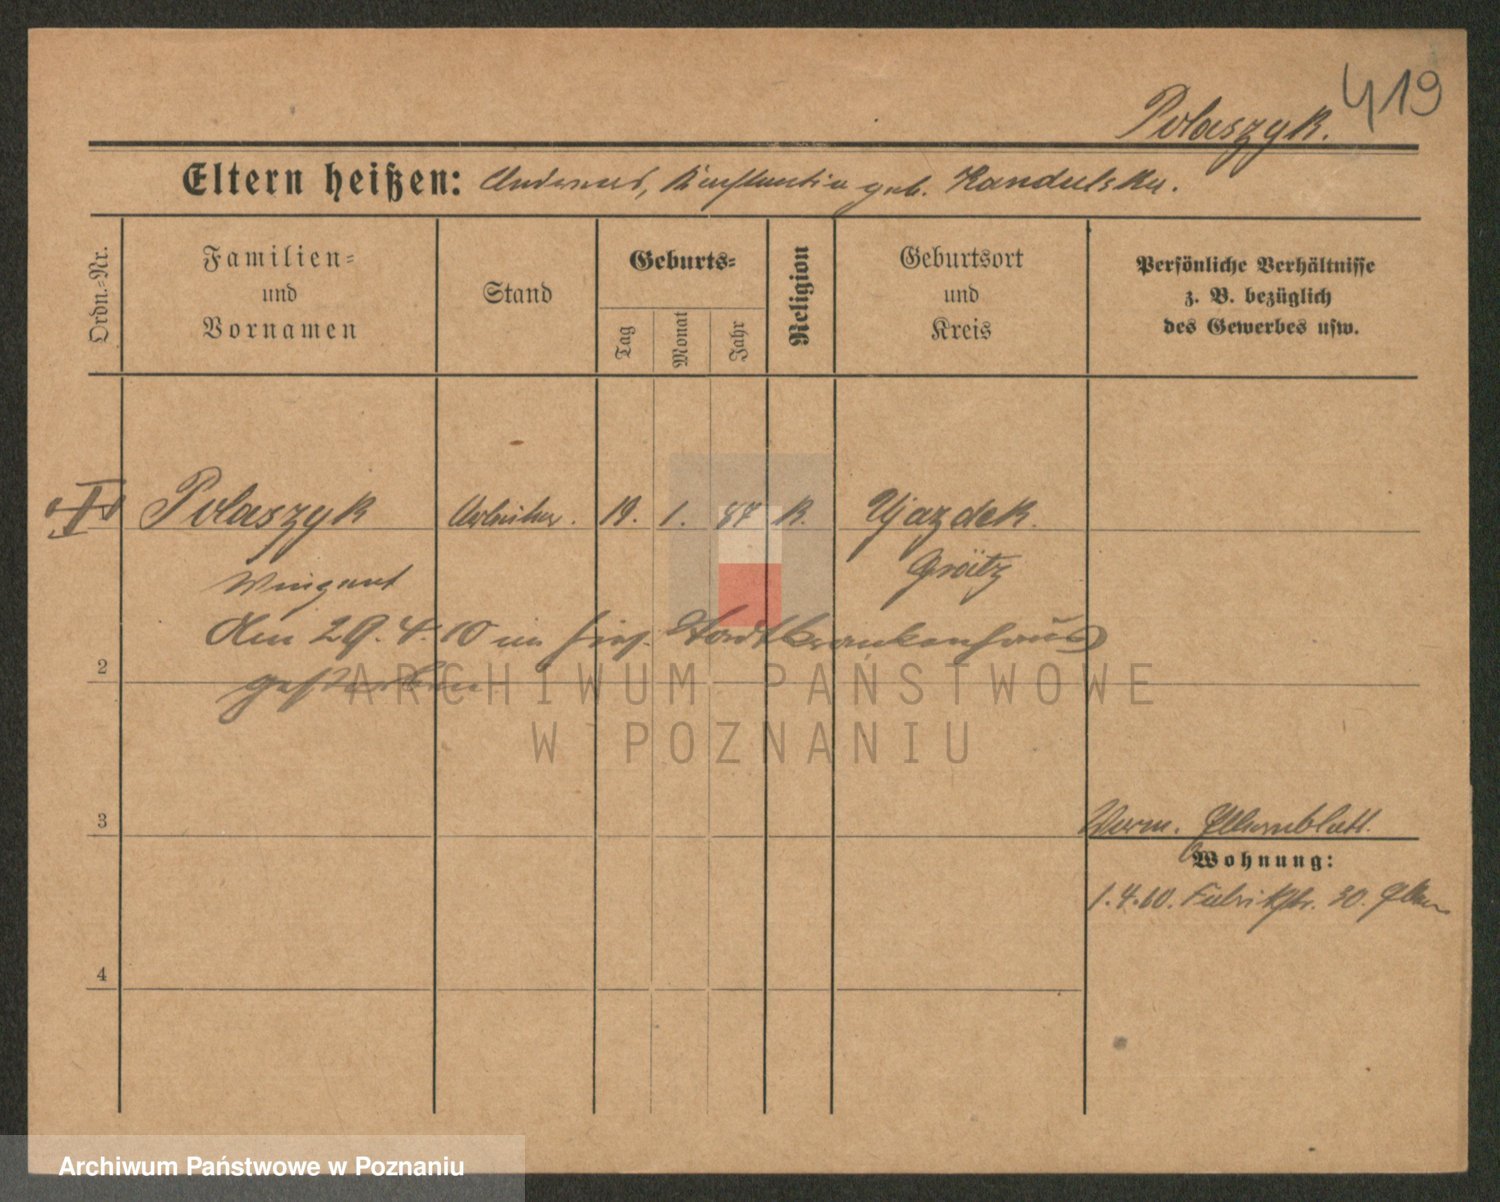 419
Polaszyk.
Eltern heißen: Andreas, Konstantia geb. Kandulska.
Ordn.-Nr.
Familien-
und
Vornamen
Stand
Geburts-
Tag
Monat
Jahr
Religion
Geburtsort
und
Kreis
Persönliche Verhältnisse
z. B. bezüglich
des Gewerbes usw.
Polaszyk Arbeiter. 19. 1. 87 K. Ujazdek.
Vinzent Grätz
Am 29.4.10 im hies. Stadtkrankenhaus
2
gestorben
3
Verm. Elternblatt.
Wohnung:
1.4.10. Fabrikstr. 30. Eltern
4
ARCHIWUM PAŃSTWOWE
W POZNANIU
Archiwum Państwowe w Poznaniu